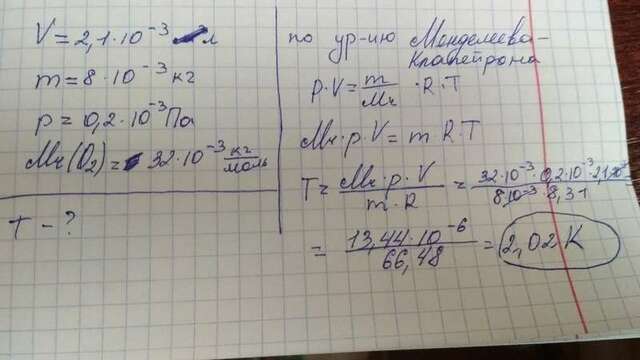 V = 2,1·10⁻³ л
m = 8·10⁻³ кг
p = 0,2·10⁻³ Па
Mr(O₂) = 32·10⁻³ кг/моль
T - ?
по ур-ию Менделеева-
Клапейрона
p·V = m/Mr ·R·T
Mr·p·V = m·R·T
T = Mr·p·V / m·R = 32·10⁻³·0,2·10⁻³·2,1·10⁻³ / 8·10⁻³·8,31
= 13,44·10⁻⁶ / 66,48 = 2,02 K